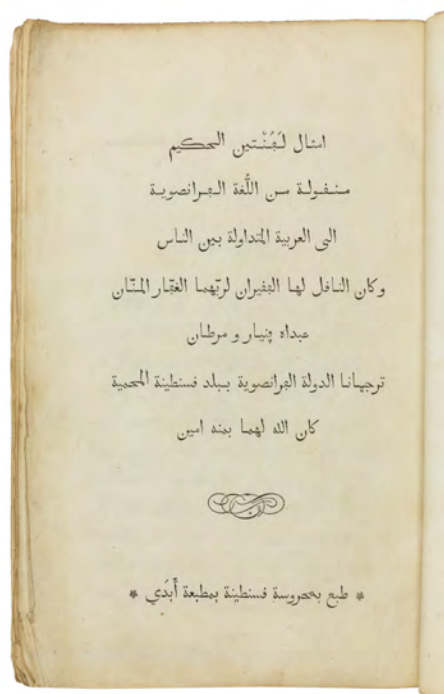 امثال لَفُنْتين الحكيم
منقولة من اللُّغة الفرانصوية
الى العربية المتداولة بين الناس
وكان الناقل لها الفقيران لربّهما الغفّار المنّان
عبداه پنيار و مرطان
ترجمانا الدولة الفرانصوية ببلد قسنطينة المحمية
كان الله لهما بمنه امين
* طبع بمحروسة قسنطينة بمطبعة أَبَدي *